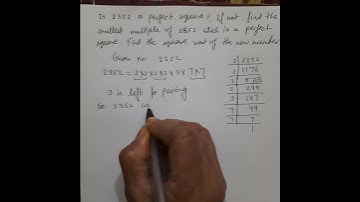 Is 2352 a perfect square? if not, find the
smallest multiple of 2352 which is a perfect
square. Find the square root of the new number
Given no. 2352
2352 = 2x2x2x2x3x7x7
3 is left for pairing
So 2352 ca
2 2352
2 1176
2 588
2 294
3 147
7 49
7 7
1